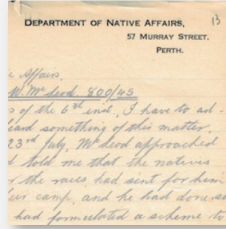 DEPARTMENT OF NATIVE AFFAIRS, 13
57 MURRAY STREET.
PERTH.
Affairs.
W. McLeod 800/45
of the 6th inst, I have to ad-
something of this matter.
23rd July, McLeod approached
told me that the natives
the races, had sent for him
camp, and he had done so
had formulated a scheme to